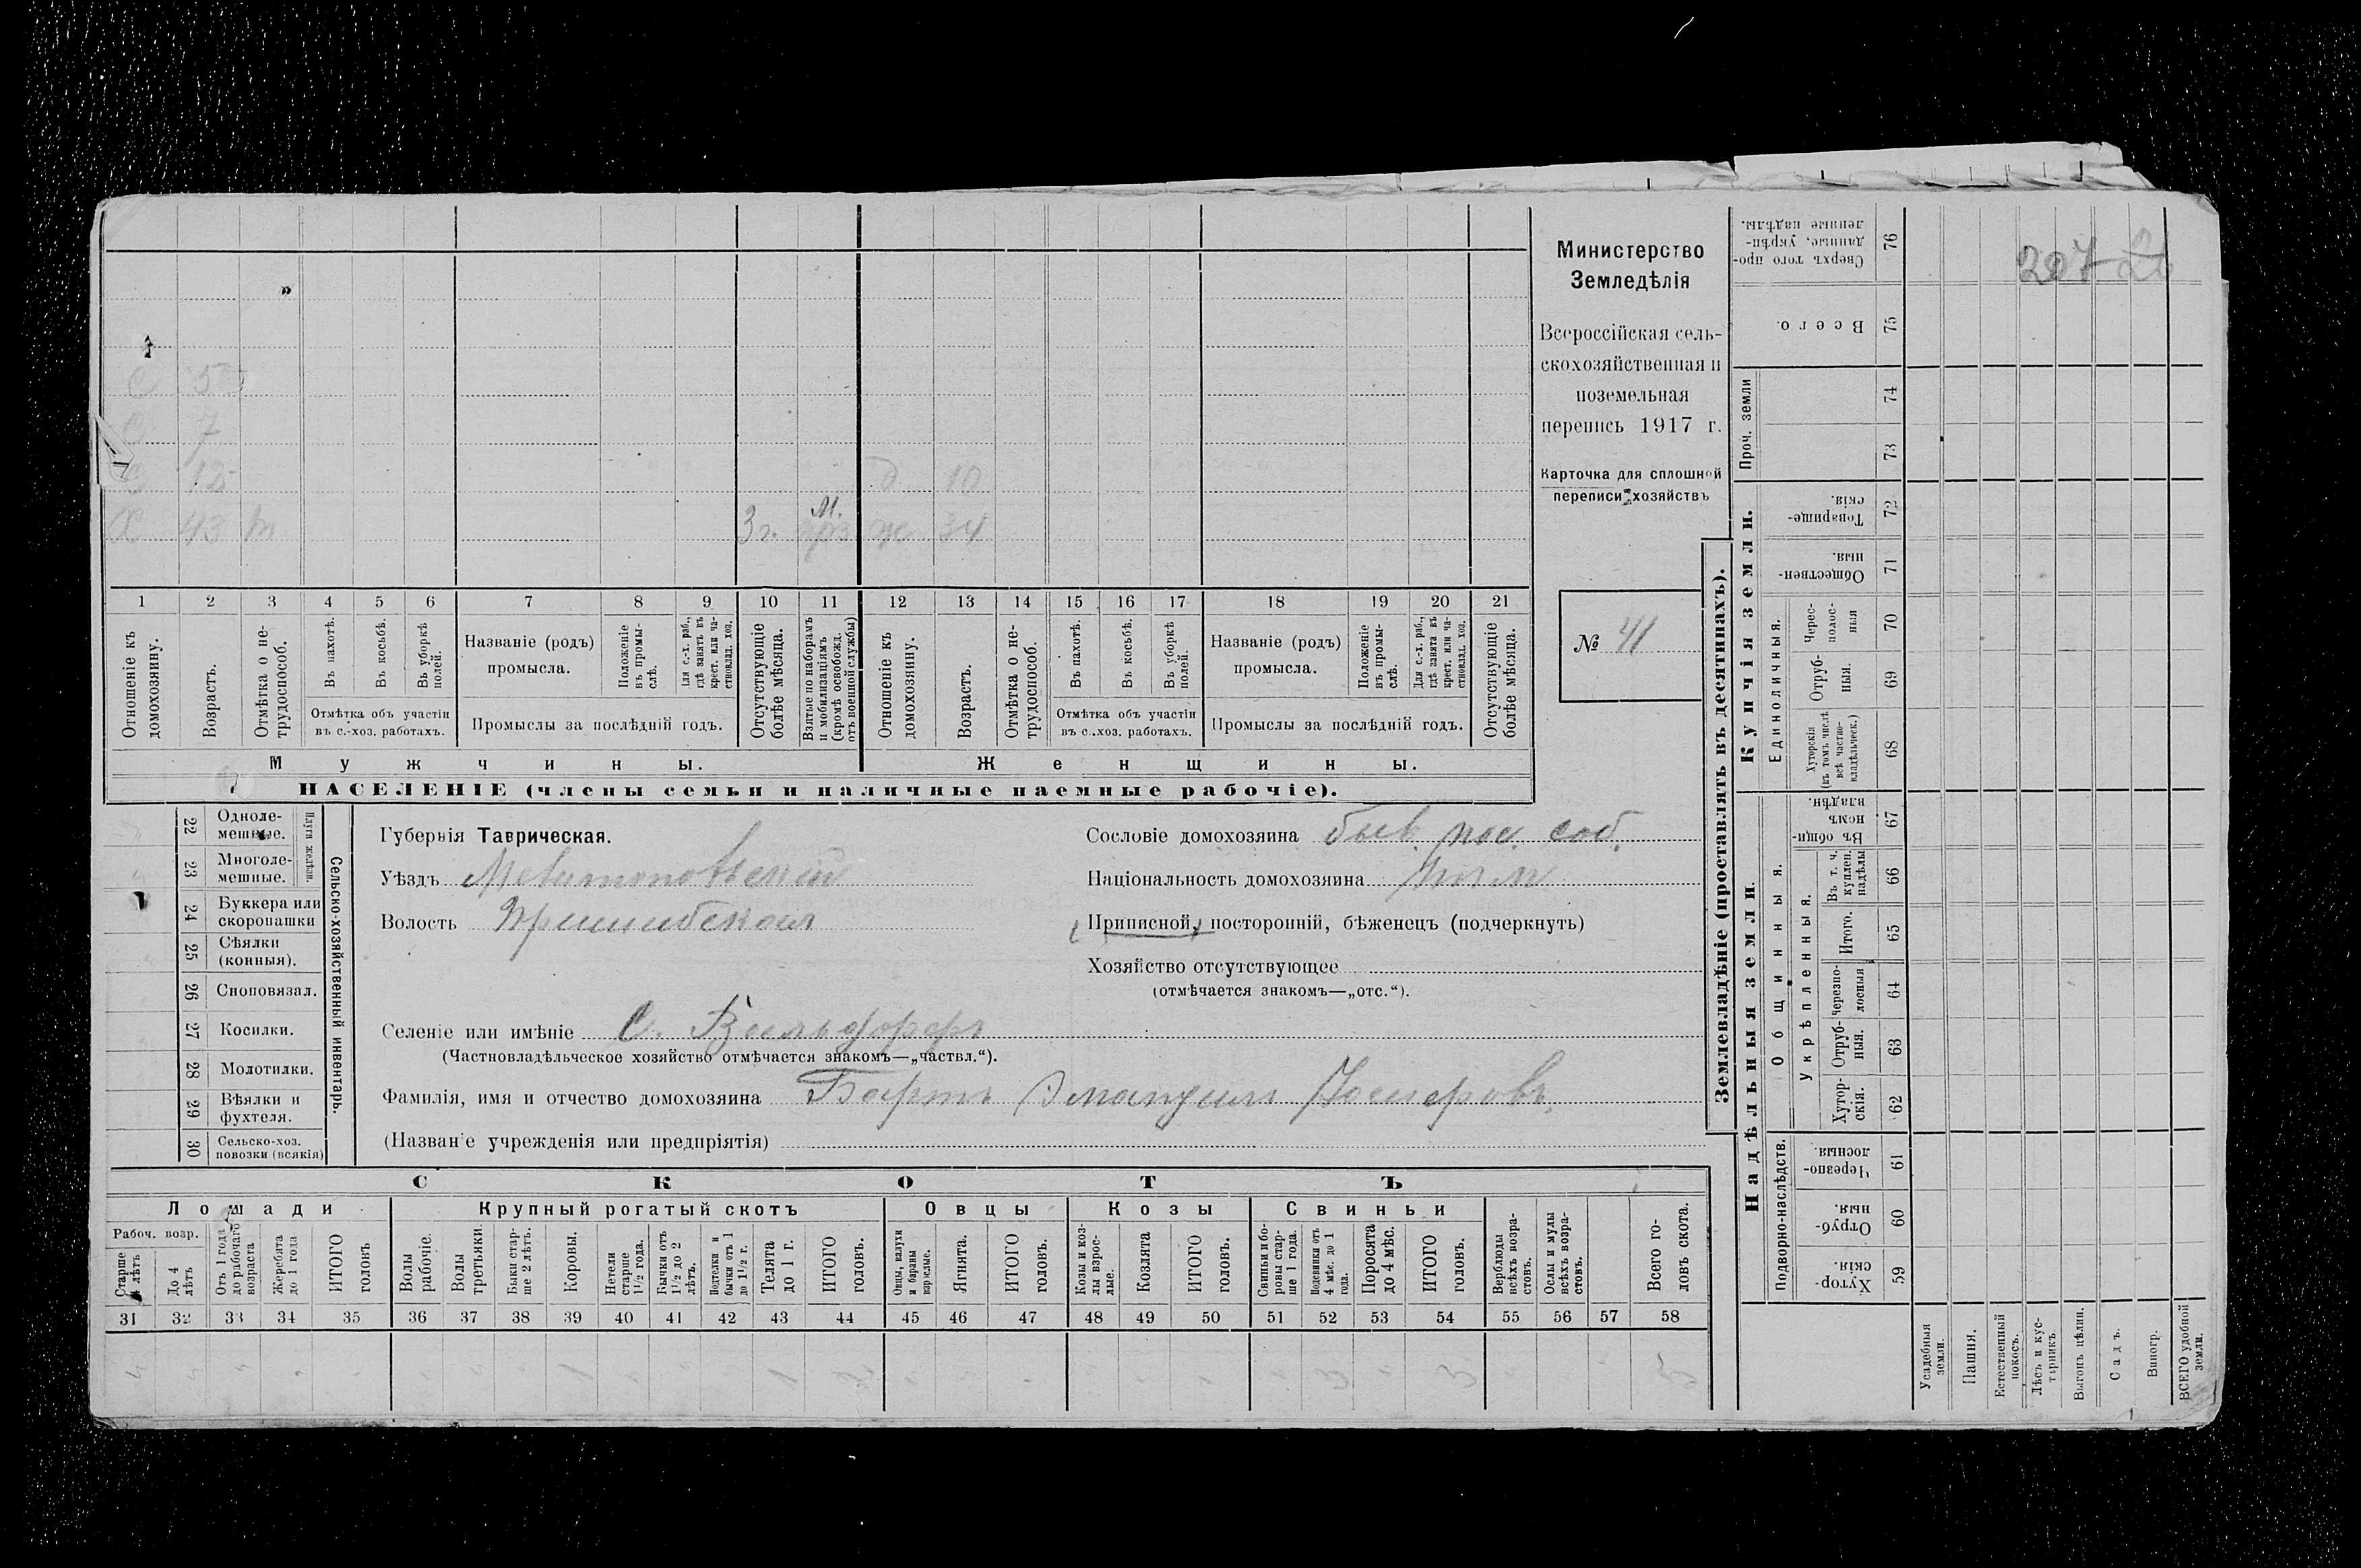 207 26
С 5
С 7
С 12 д 10
Х 43 3 г. М. ж 34
1 2 3 4 5 6 7 8 9 10 11 12 13 14 15 16 17 18 19 20 21
Отношеніе къ домохозяину.
Возрастъ.
Отмѣтка о не-трудоспособ.
Въ пахотѣ.
Въ косьбѣ.
Въ уборкѣ полей.
Отмѣтка объ участіи въ с.-хоз. работахъ.
Названіе (родъ) промысла.
Положеніе въ промы-слѣ.
Для с.-х. раб., гдѣ занятъ въ крест. или ча-стновлад. хоз.
Промыслы за послѣдній годъ.
Отсутствующіе болѣе мѣсяца.
Взятые по наборамъ и мобилизаціямъ (кромѣ освобожд. отъ военной службы)
Отношеніе къ домохозяину.
Возрастъ.
Отмѣтка о не-трудоспособ.
Въ пахотѣ.
Въ косьбѣ.
Въ уборкѣ полей.
Отмѣтка объ участіи въ с.-хоз. работахъ.
Названіе (родъ) промысла.
Положеніе въ промы-слѣ.
Для с.-х. раб., гдѣ занята въ крест. или ча-стновлад. хоз.
Промыслы за послѣдній годъ.
Отсутствующіе болѣе мѣсяца.
Мужчины.
Женщины.
НАСЕЛЕНІЕ (члены семьи и наличные наемные рабочіе).
Министерство
Земледѣлія
Всероссійская сель-
скохозяйственная и
поземельная
перепись 1917 г.
Карточка для сплошной
переписи хозяйствъ
№ 41
22 Одноле-мешные.
23 Многоле-мешные.
Плуги желѣзн.
24 Буккера или скоропашки
25 Сѣялки (конныя).
26 Сноповязал.
27 Косилки.
28 Молотилки.
29 Вѣялки и фухтеля.
30 Сельско-хоз. повозки (всякія)
Сельско-хозяйственный инвентарь.
Губернія Таврическая.
Уѣздъ Мелитопольскій
Волость Пришибская
Сословіе домохозяина быв. пос. соб.
Національность домохозяина Нѣм
Приписной, посторонній, бѣженецъ (подчеркнуть)
Хозяйство отсутствующее
(отмѣчается знакомъ—„отс.“).
Селеніе или имѣніе С. Вальдорфъ
(Частновладѣльческое хозяйство отмѣчается знакомъ—„частвл.“).
Фамилія, имя и отчество домохозяина Бартъ Эмануилъ
(Названіе учрежденія или предпріятія)
СКОТЪ
Лошади
Крупный рогатый скотъ
Овцы
Козы
Свиньи
Рабоч. возр.
Старше 4 лѣтъ
До 4 лѣтъ
Отъ 1 года до рабочаго возраста
Жеребята до 1 года
ИТОГО головъ
Волы рабочіе.
Волы третьяки.
Быки стар-ше 2 лѣтъ.
Коровы.
Нетели старше 1½ года.
Бычки отъ 1½ до 2 лѣтъ.
Подтелки и бычки отъ 1 до 1½ г.
Телята до 1 г.
ИТОГО головъ.
Овцы, валухи и бараны взрослые.
Ягнята.
ИТОГО головъ.
Козы и коз-лы взрос-лые.
Козлята
ИТОГО головъ.
Свиньи и бо-ровы стар-ше 1 года.
Подсвинки отъ 4 мѣс. до 1 года.
Поросята до 4 мѣс.
ИТОГО головъ.
Верблюды всѣхъ возра-стовъ.
Ослы и мулы всѣхъ возра-стовъ.
Всего го-ловъ скота.
31 32 33 34 35 36 37 38 39 40 41 42 43 44 45 46 47 48 49 50 51 52 53 54 55 56 57 58
1 1 2 3 3 5
Землевладѣніе (проставлять въ десятинахъ).
Купчія земли.
Надѣльныя земли.
Сверхъ того про-данные, укрѣп-ленные надѣлы. 76
Всего. 75
Проч. земли 74 73
Товарище-скія. 72
Обществен-ныя. 71
Единоличныя.
Черес-полос-ныя 70
Отруб-ныя. 69
Хуторскія (въ томъ числѣ всѣ частно-владѣльческ.) 68
Общинныя.
Въ общи-номъ владѣн. 67
Укрѣпленныя.
Въ т. ч. куплен. надѣлы 66
Итого. 65
Черезпо-лосныя 64
Отруб-ныя. 63
Хутор-скія. 62
Подворно-наслѣдств.
Черезпо-лосныя. 61
Отруб-ныя. 60
Хутор-скія. 59
Усадебныя земли.
Пашня.
Естественный покосъ.
Лѣсъ и кус-тарникъ.
Выгонъ цѣлин.
Садъ.
Виногр.
ВСЕГО удобной земли.